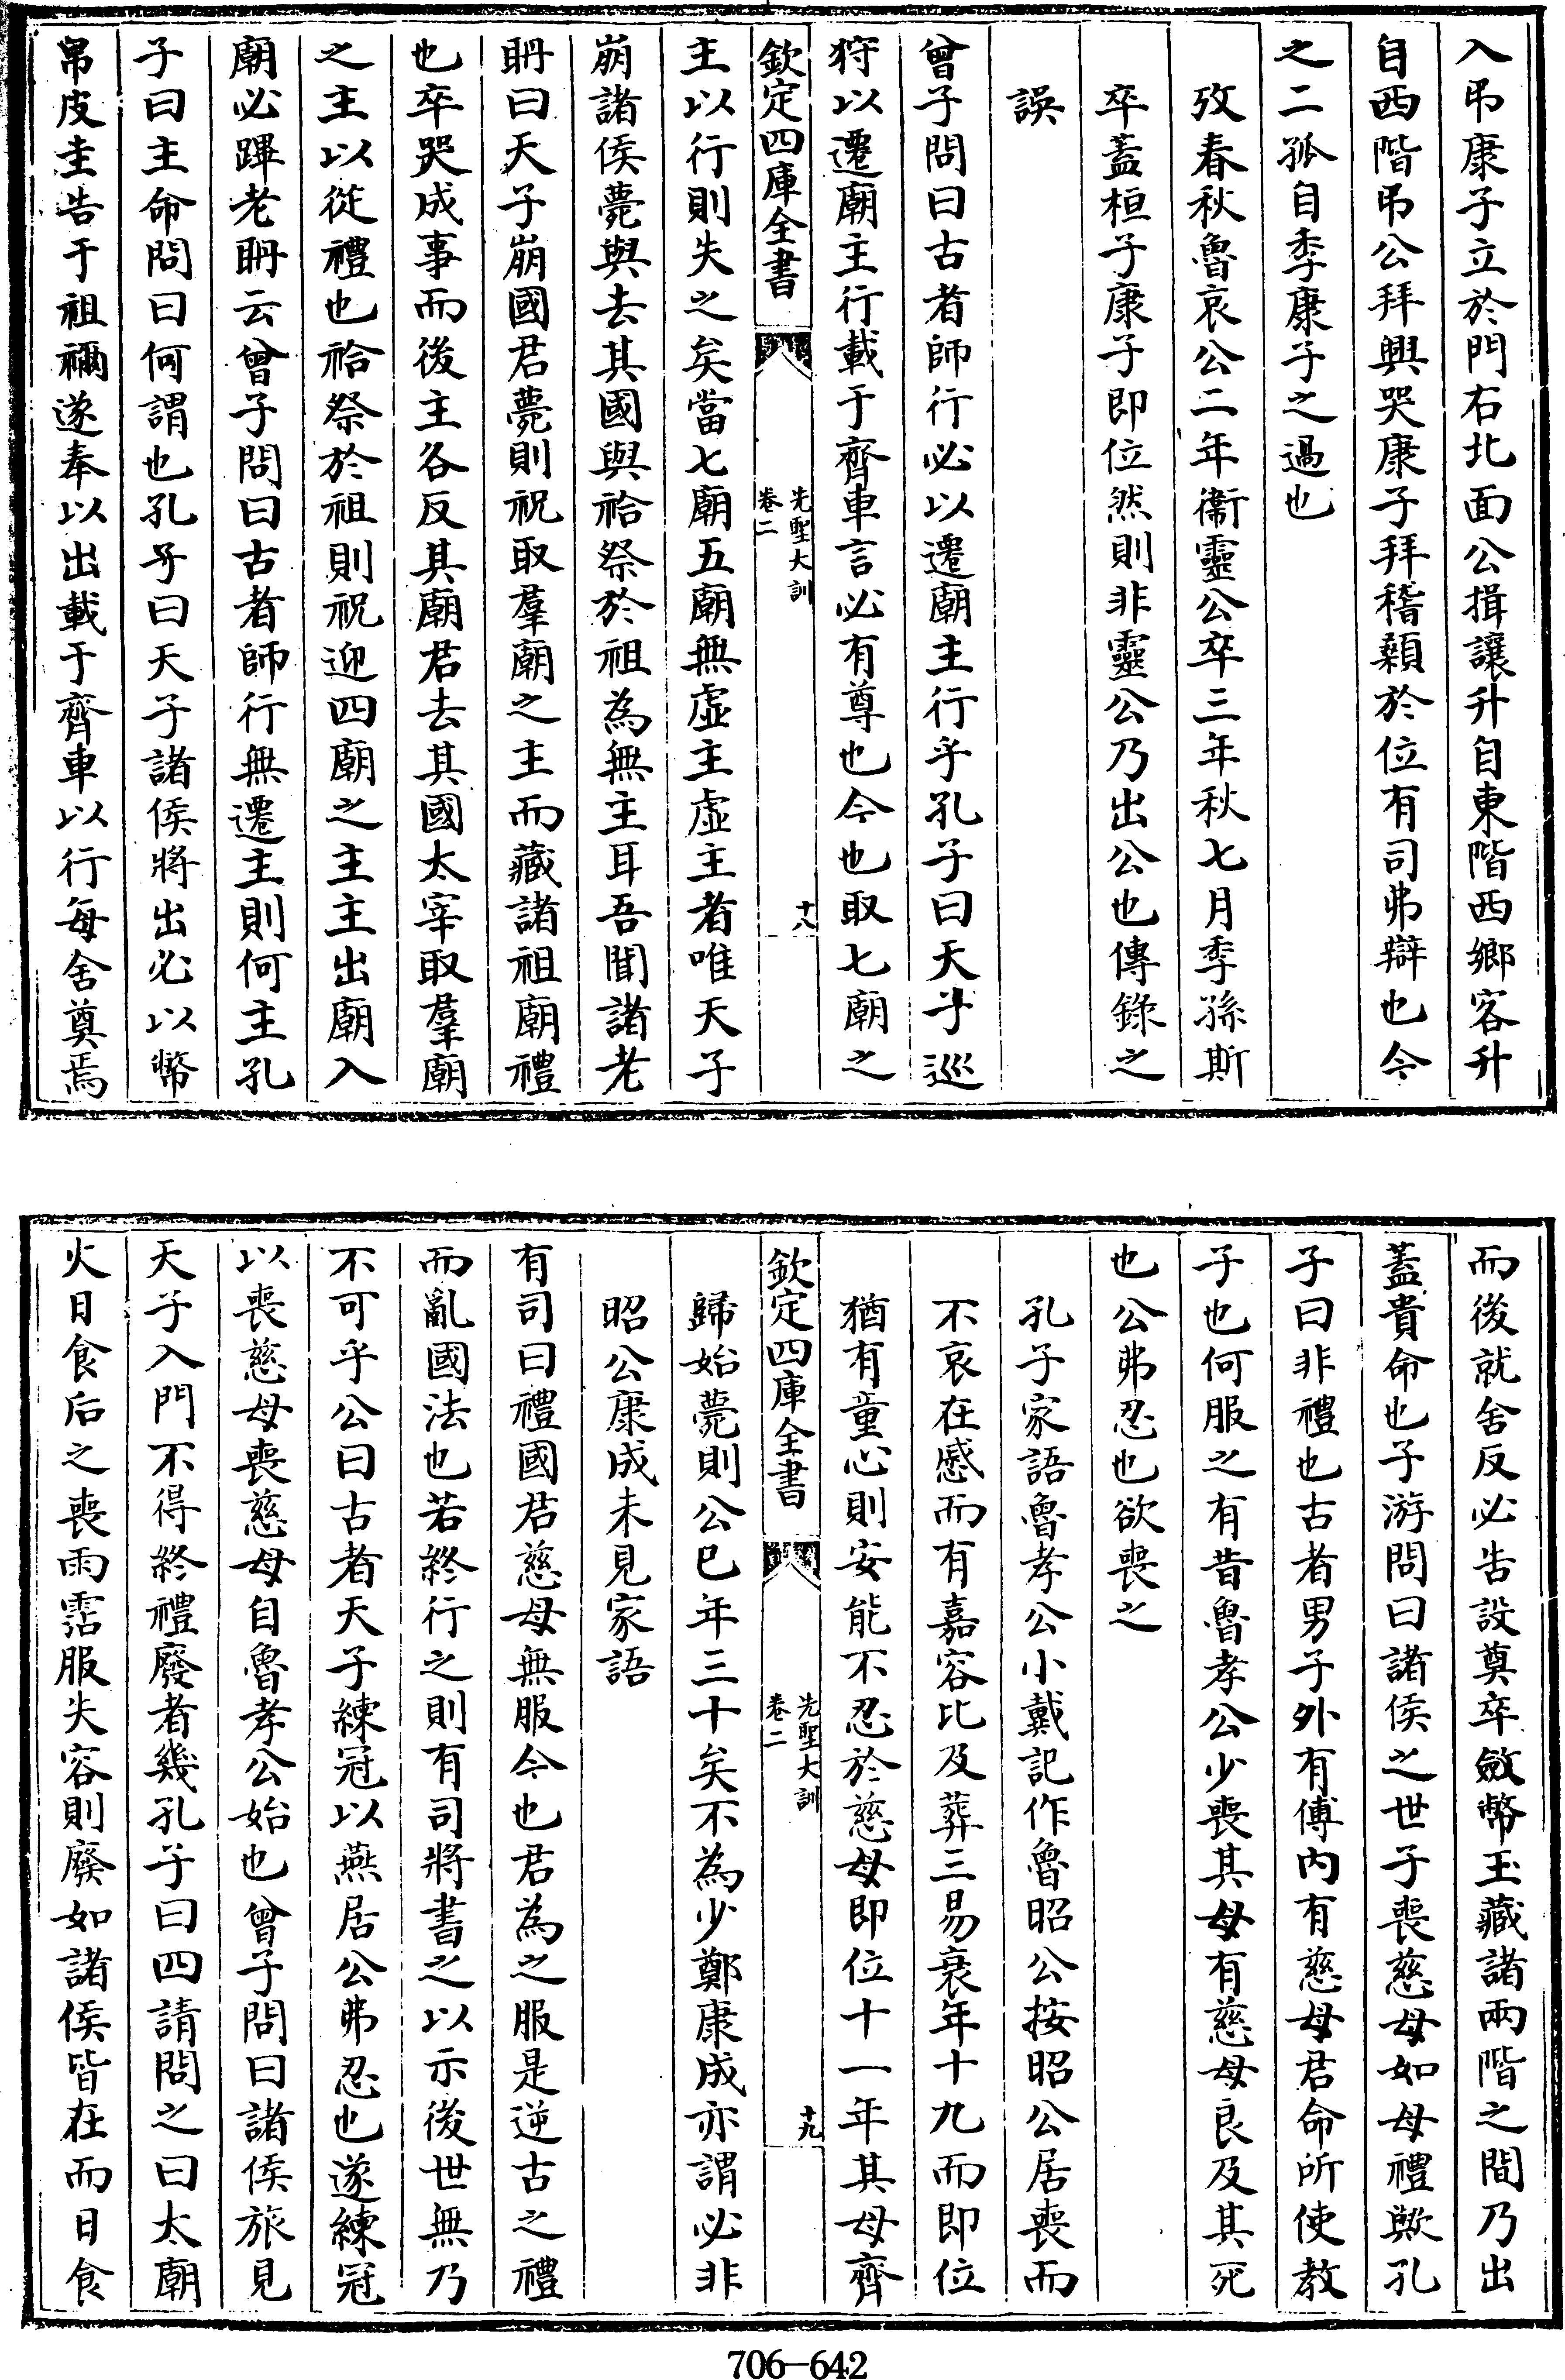 入弔康子立於門右北面公揖讓升自東階西鄉客升
自西階弔公拜興哭康子拜稽顙於位有司弗辯也今
之二孤自季康子之過也
攷春秋魯哀公二年衞靈公卒三年秋七月季孫斯
卒蓋桓子康子即位然則非靈公乃出公也傳錄之
誤
曾子問曰古者師行必以遷廟主行乎孔子曰天子巡
狩以遷廟主行載于齊車言必有尊也今也取七廟之
欽定四庫全書
先聖大訓
卷二
十八
主以行則失之矣當七廟五廟無虛主虛主者唯天子
崩諸侯薨與去其國與祫祭於祖為無主耳吾聞諸老
耼曰天子崩國君薨則祝取羣廟之主而藏諸祖廟禮
也卒哭成事而後主各反其廟君去其國太宰取羣廟
之主以從禮也祫祭於祖則祝迎四廟之主主出廟入
廟必蹕老耼云曾子問曰古者師行無遷主則何主孔
子曰主命問曰何謂也孔子曰天子諸侯將出必以幣
帛皮圭告于祖禰遂奉以出載于齊車以行每舍奠焉
而後就舍反必告設奠卒斂幣玉藏諸兩階之間乃出
蓋貴命也子游問曰諸侯之世子喪慈母如母禮歟孔
子曰非禮也古者男子外有傅內有慈母君命所使教
子也何服之有昔魯孝公少喪其母有慈母良及其死
也公弗忍也欲喪之
孔子家語魯孝公小戴記作魯昭公按昭公居喪而
不哀在慼而有嘉容比及葬三易衰年十九而即位
猶有童心則安能不忍於慈母即位十一年其母齊
欽定四庫全書
先聖大訓
卷二
十九
歸始薨則公巳年三十矣不為少鄭康成亦謂必非
昭公康成未見家語
有司曰禮國君慈母無服今也君為之服是逆古之禮
而亂國法也若終行之則有司將書之以示後世無乃
不可乎公曰古者天子練冠以燕居公弗忍也遂練冠
以喪慈母喪慈母自魯孝公始也曾子問曰諸侯旅見
天子入門不得終禮廢者幾孔子曰四請問之曰太廟
火日食后之喪雨霑服失容則廢如諸侯皆在而日食
706—642